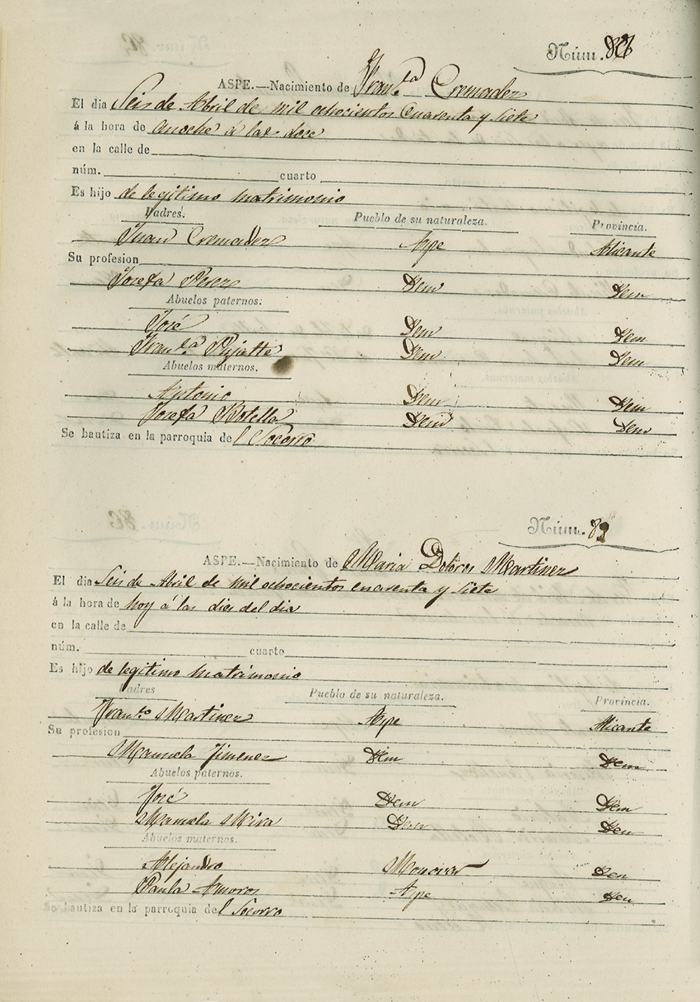 Núm.
ASPE.—Nacimiento de Fran.ca Cremades
El dia Seis de Abril de mil ochocientos cuarenta y siete
á la hora de anoche á las doce
en la calle de
núm. cuarto
Es hijo de legitimo matrimonio
Padres. Pueblo de su naturaleza. Provincia.
Juan Cremades Aspe Alicante
Su profesion
Josefa Perez Dem Dem
Abuelos paternos.
José Dem Dem
Fran.ca Pujalte Dem Dem
Abuelos maternos.
Antonio Dem Dem
Josefa Botella Dem Dem
Se bautiza en la parroquia del Socorro
Núm.
ASPE.—Nacimiento de Maria Dolores Martinez
El dia Seis de Abril de mil ochocientos cuarenta y siete
á la hora de hoy á las dies del dia
en la calle de
núm. cuarto
Es hijo de legitimo matrimonio
Padres Pueblo de su naturaleza. Provincia.
Fran.co Martinez Aspe Alicante
Su profesion
Manuela Jimenez Dem Dem
Abuelos paternos.
José Dem Dem
Manuela Mira Dem Dem
Abuelos maternos.
Alejandro Monovar Dem
Paula Amoros Aspe Dem
Se bautiza en la parroquia del Socorro